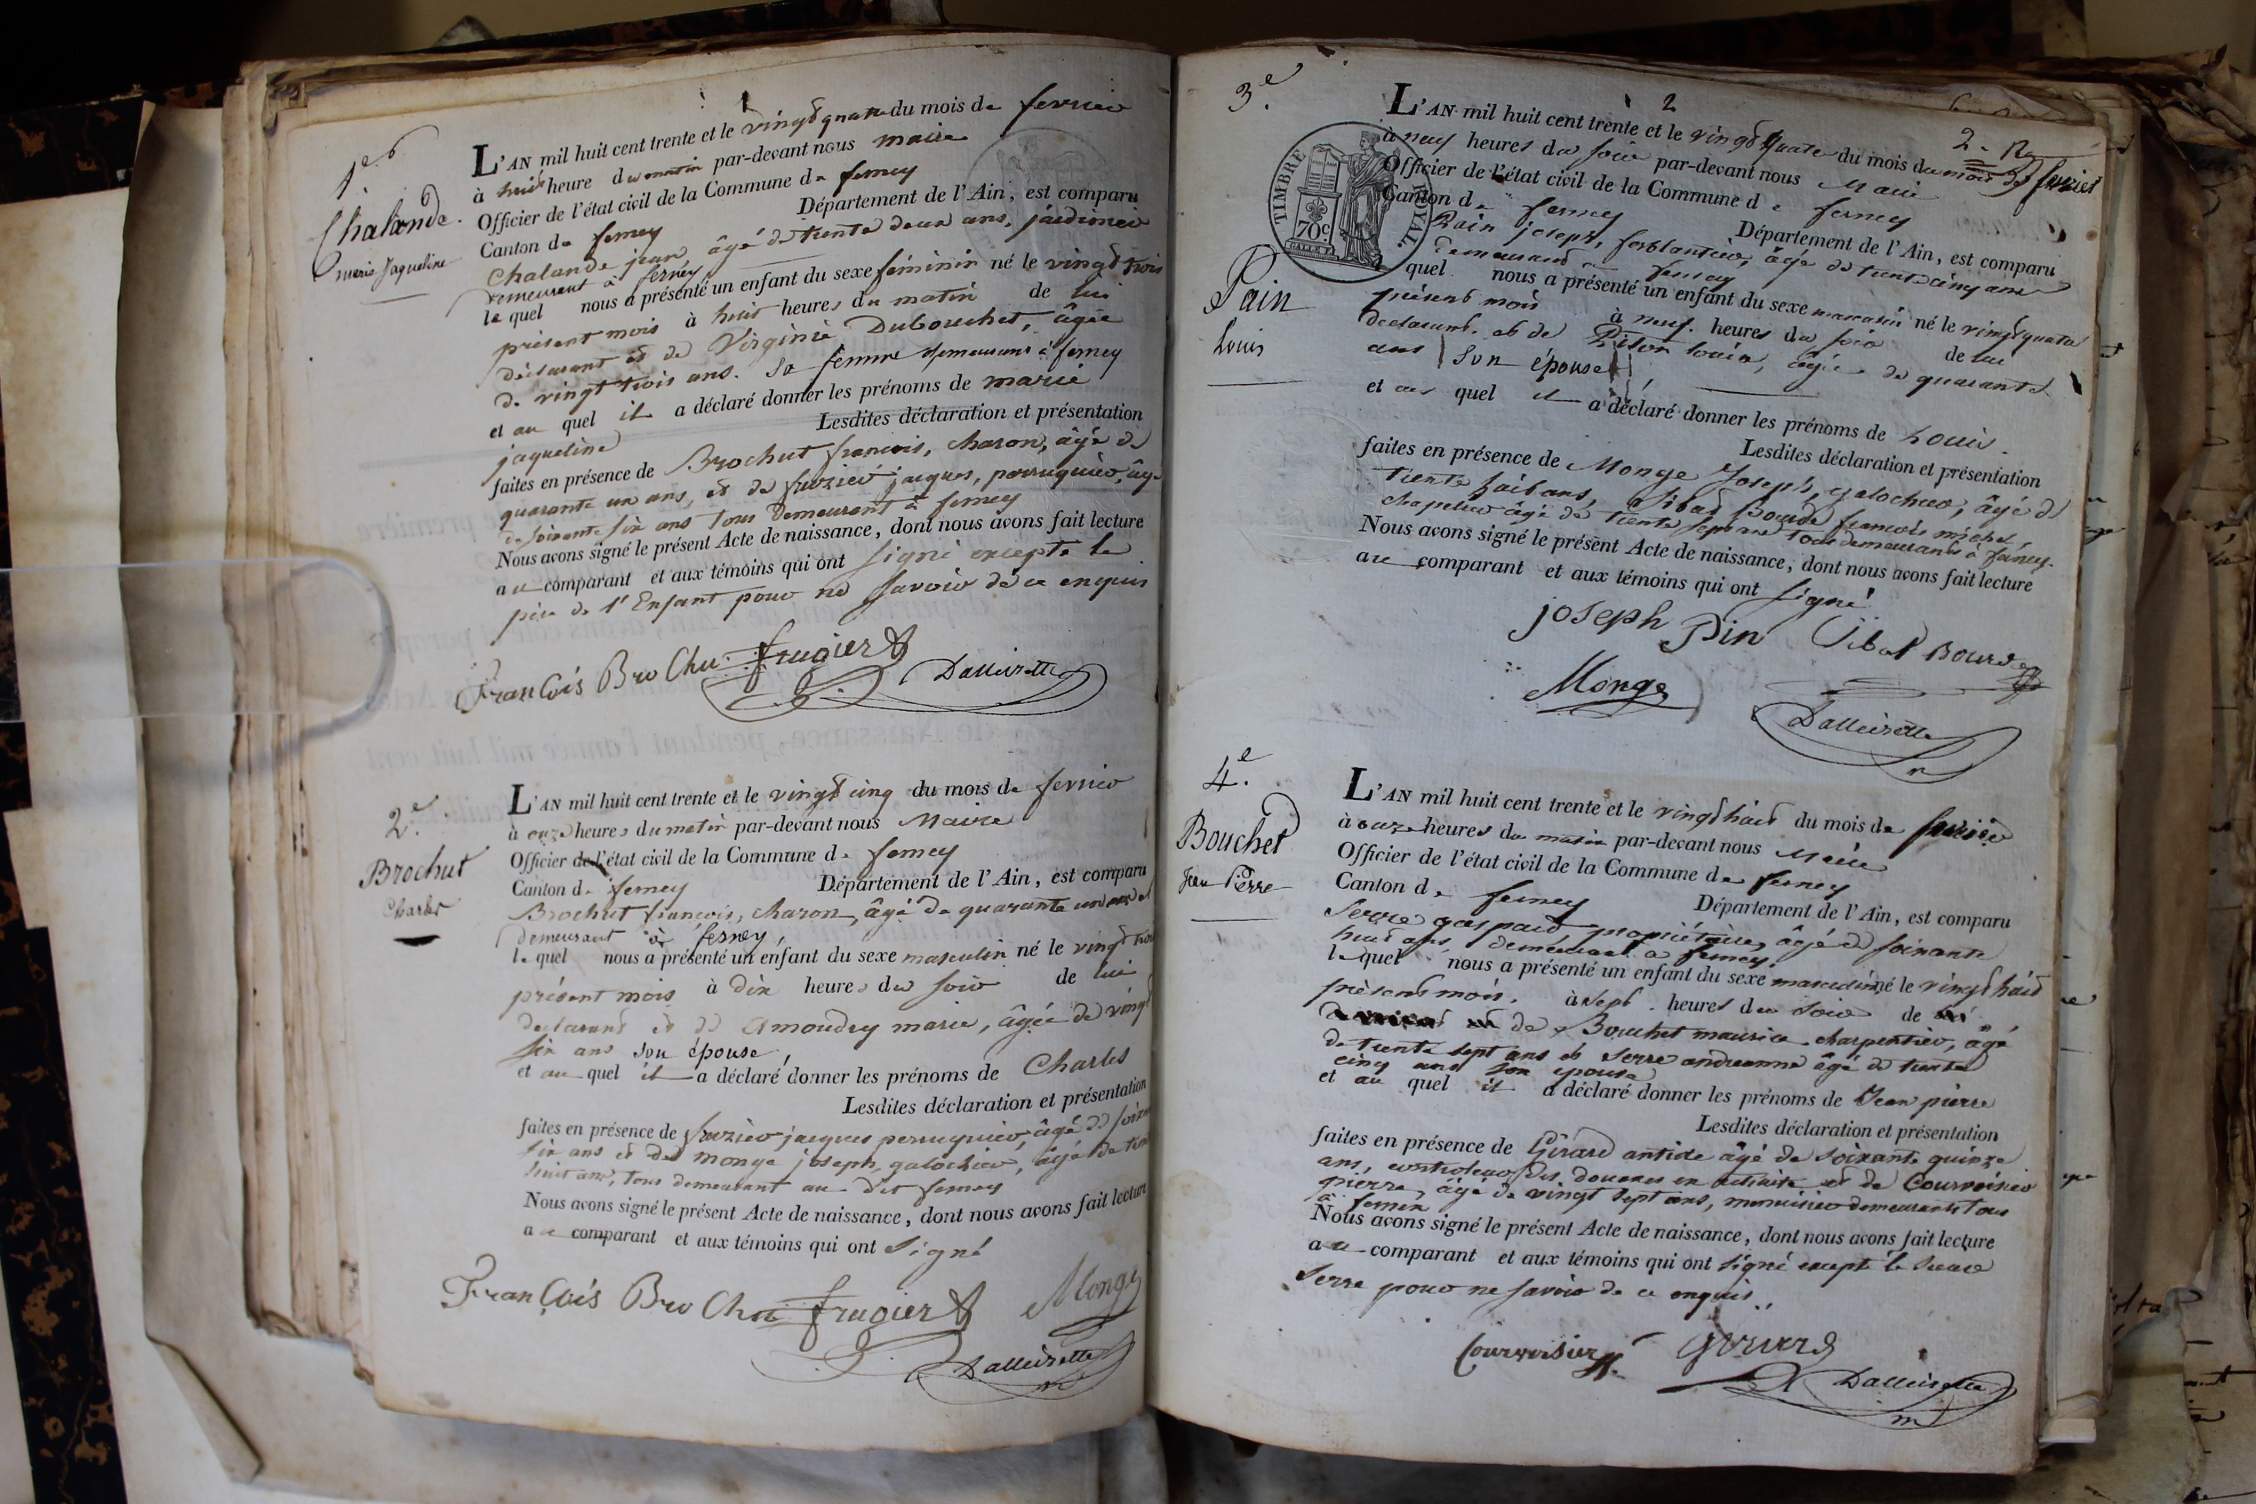 1er
Chalande
marie Jaqueline
L'AN mil huit cent trente et le vingt quatre du mois de fevrier
à huit heures du matin par-devant nous maire
Officier de l'état civil de la Commune de ferney
Canton de ferney Département de l'Ain, est comparu
Chalande jean, âgé de trente deux ans, jardinier
demeurant à ferney
le quel nous a présenté un enfant du sexe féminin né le vingt trois
présent mois à huit heures du matin de lui
déclarant et de Virginie Dubouchet, âgée
de vingt trois ans. Sa femme demeurant à ferney
et au quel il a déclaré donner les prénoms de marie
jaqueline Lesdites déclaration et présentation
faites en présence de Brochut francois, charon, âgé de
quarante un ans, et de jacques, perruquier, âgé
de soixante six ans tous demeurant à ferney
Nous avons signé le présent Acte de naissance, dont nous avons fait lecture
au comparant et aux témoins qui ont signé excepté le
père de l'Enfant pour ne savoir de ce enquis
FranÇois BroChu frugier
2e.
Brochut
Charles
L'AN mil huit cent trente et le vingt cinq du mois de fevrier
à onze heures du matin par-devant nous Maire
Officier de l'état civil de la Commune de ferney
Canton de ferney Département de l'Ain, est comparu
Brochut francois, charon, âgé de quarante un ans et
demeurant à ferney,
le quel nous a présenté un enfant du sexe masculin né le vingt trois
présent mois à dix heures du soir de lui
declarant et de Amoudry marie, âgée de vingt
six ans son épouse
et au quel il a déclaré donner les prénoms de Charles
Lesdites déclaration et présentation
faites en présence de jacques perruquier, âgé de soixante
six ans et de monge joseph, galochier, âgé de trente
huit ans, tous demeurant au dit ferney
Nous avons signé le présent Acte de naissance, dont nous avons fait lecture
au comparant et aux témoins qui ont Signé
FranÇois BroChu frugier Monge
2
2.
3e.
TIMBRE ROYAL
70c
Pain
Louis
L'AN mil huit cent trente et le vingt quatre du mois du mois de fevrier
à neuf heures du soir par-devant nous Maire
Officier de l'état civil de la Commune de ferney
Canton de ferney Département de l'Ain, est comparu
Pain joseph, ferblantier, âgé de trente cinq ans
demeurant ferney
quel nous a présenté un enfant du sexe masculin né le vingt quatre
présent mois à neuf heures du soir de lui
declarant et de louise, âgée de quarante
ans Son épouse
et au quel il a déclaré donner les prénoms de Louis.
Lesdites déclaration et présentation
faites en présence de Monge Joseph, galochier, âgé de
trente huit ans, Sibat Bourde francois michel,
chapelier âgé de trente sept ans tous demeurants à ferney.
Nous avons signé le présent Acte de naissance, dont nous avons fait lecture
au comparant et aux témoins qui ont signé
joseph Pin Sibat Bourde
Monge
4e.
Bouchet
Jean Pierre
L'AN mil huit cent trente et le vingt huit du mois de fevrier
à onze heures du matin par-devant nous Maire
Officier de l'état civil de la Commune de ferney
Canton de ferney Département de l'Ain, est comparu
Serre gaspard propriétaire, âgé de soixante
huit ans, demeurant à ferney,
le quel nous a présenté un enfant du sexe masculin né le vingt huit
présent mois. à sept heures du soir de
de Bouchet maurice charpentier, âgé
de trente sept ans et Serre andreanne âgé de trente
cinq ans son épouse
et au quel il a déclaré donner les prénoms de Jean pierre
Lesdites déclaration et présentation
faites en présence de Girard antide âgé de soixante quinze
ans, controleur des douanes en retraite et de Courvoisier
pierre, âgé de vingt sept ans, menuisier demeurants tous
à ferney
Nous avons signé le présent Acte de naissance, dont nous avons fait lecture
au comparant et aux témoins qui ont signé excepté le
Serre pour ne savoir de ce enquis.
Courvoisier Girard